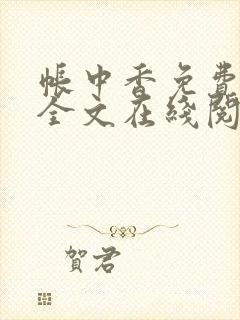 帳中香免費
全文在綫閱
賀君